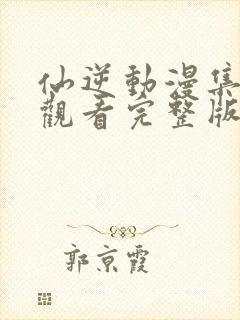 仙逆動漫集
觀看完整版
郭京霞